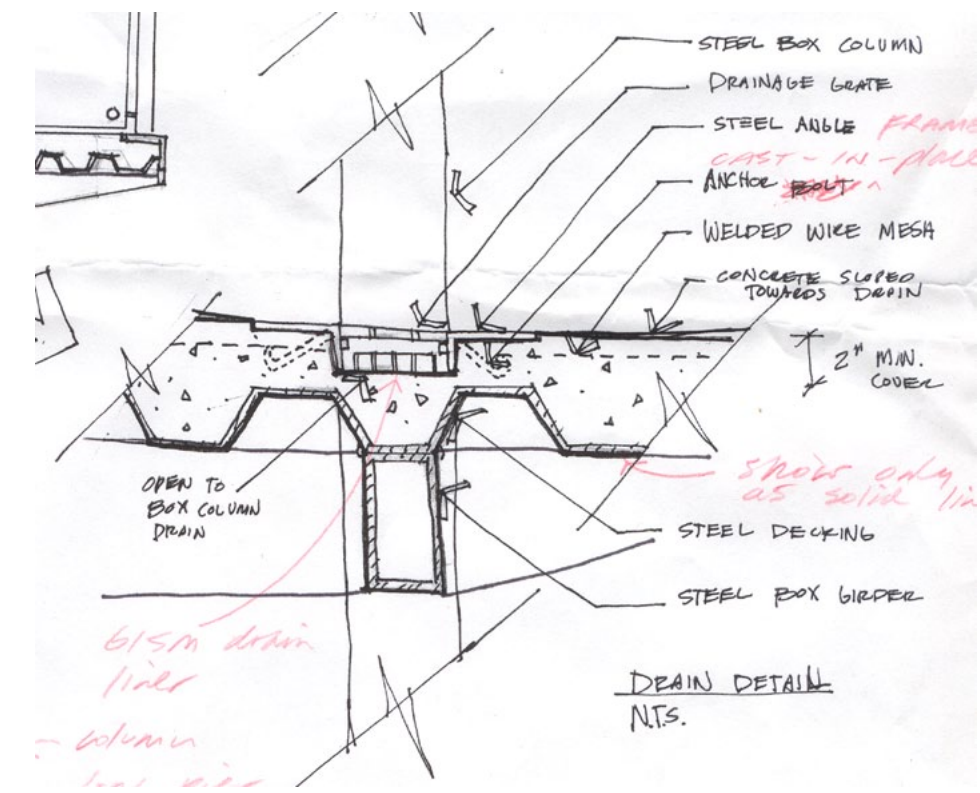 STEEL BOX COLUMN
DRAINAGE GRATE
STEEL ANGLE FRAME
CAST-IN-place
ANCHOR BOLT
WELDED WIRE MESH
CONCRETE SLOPED
TOWARDS DRAIN
2" MIN.
COVER
OPEN TO
BOX COLUMN
DRAIN
show only
as solid
STEEL DECKING
STEEL BOX GIRDER
drain
liner
column
DRAIN DETAIL
N.T.S.